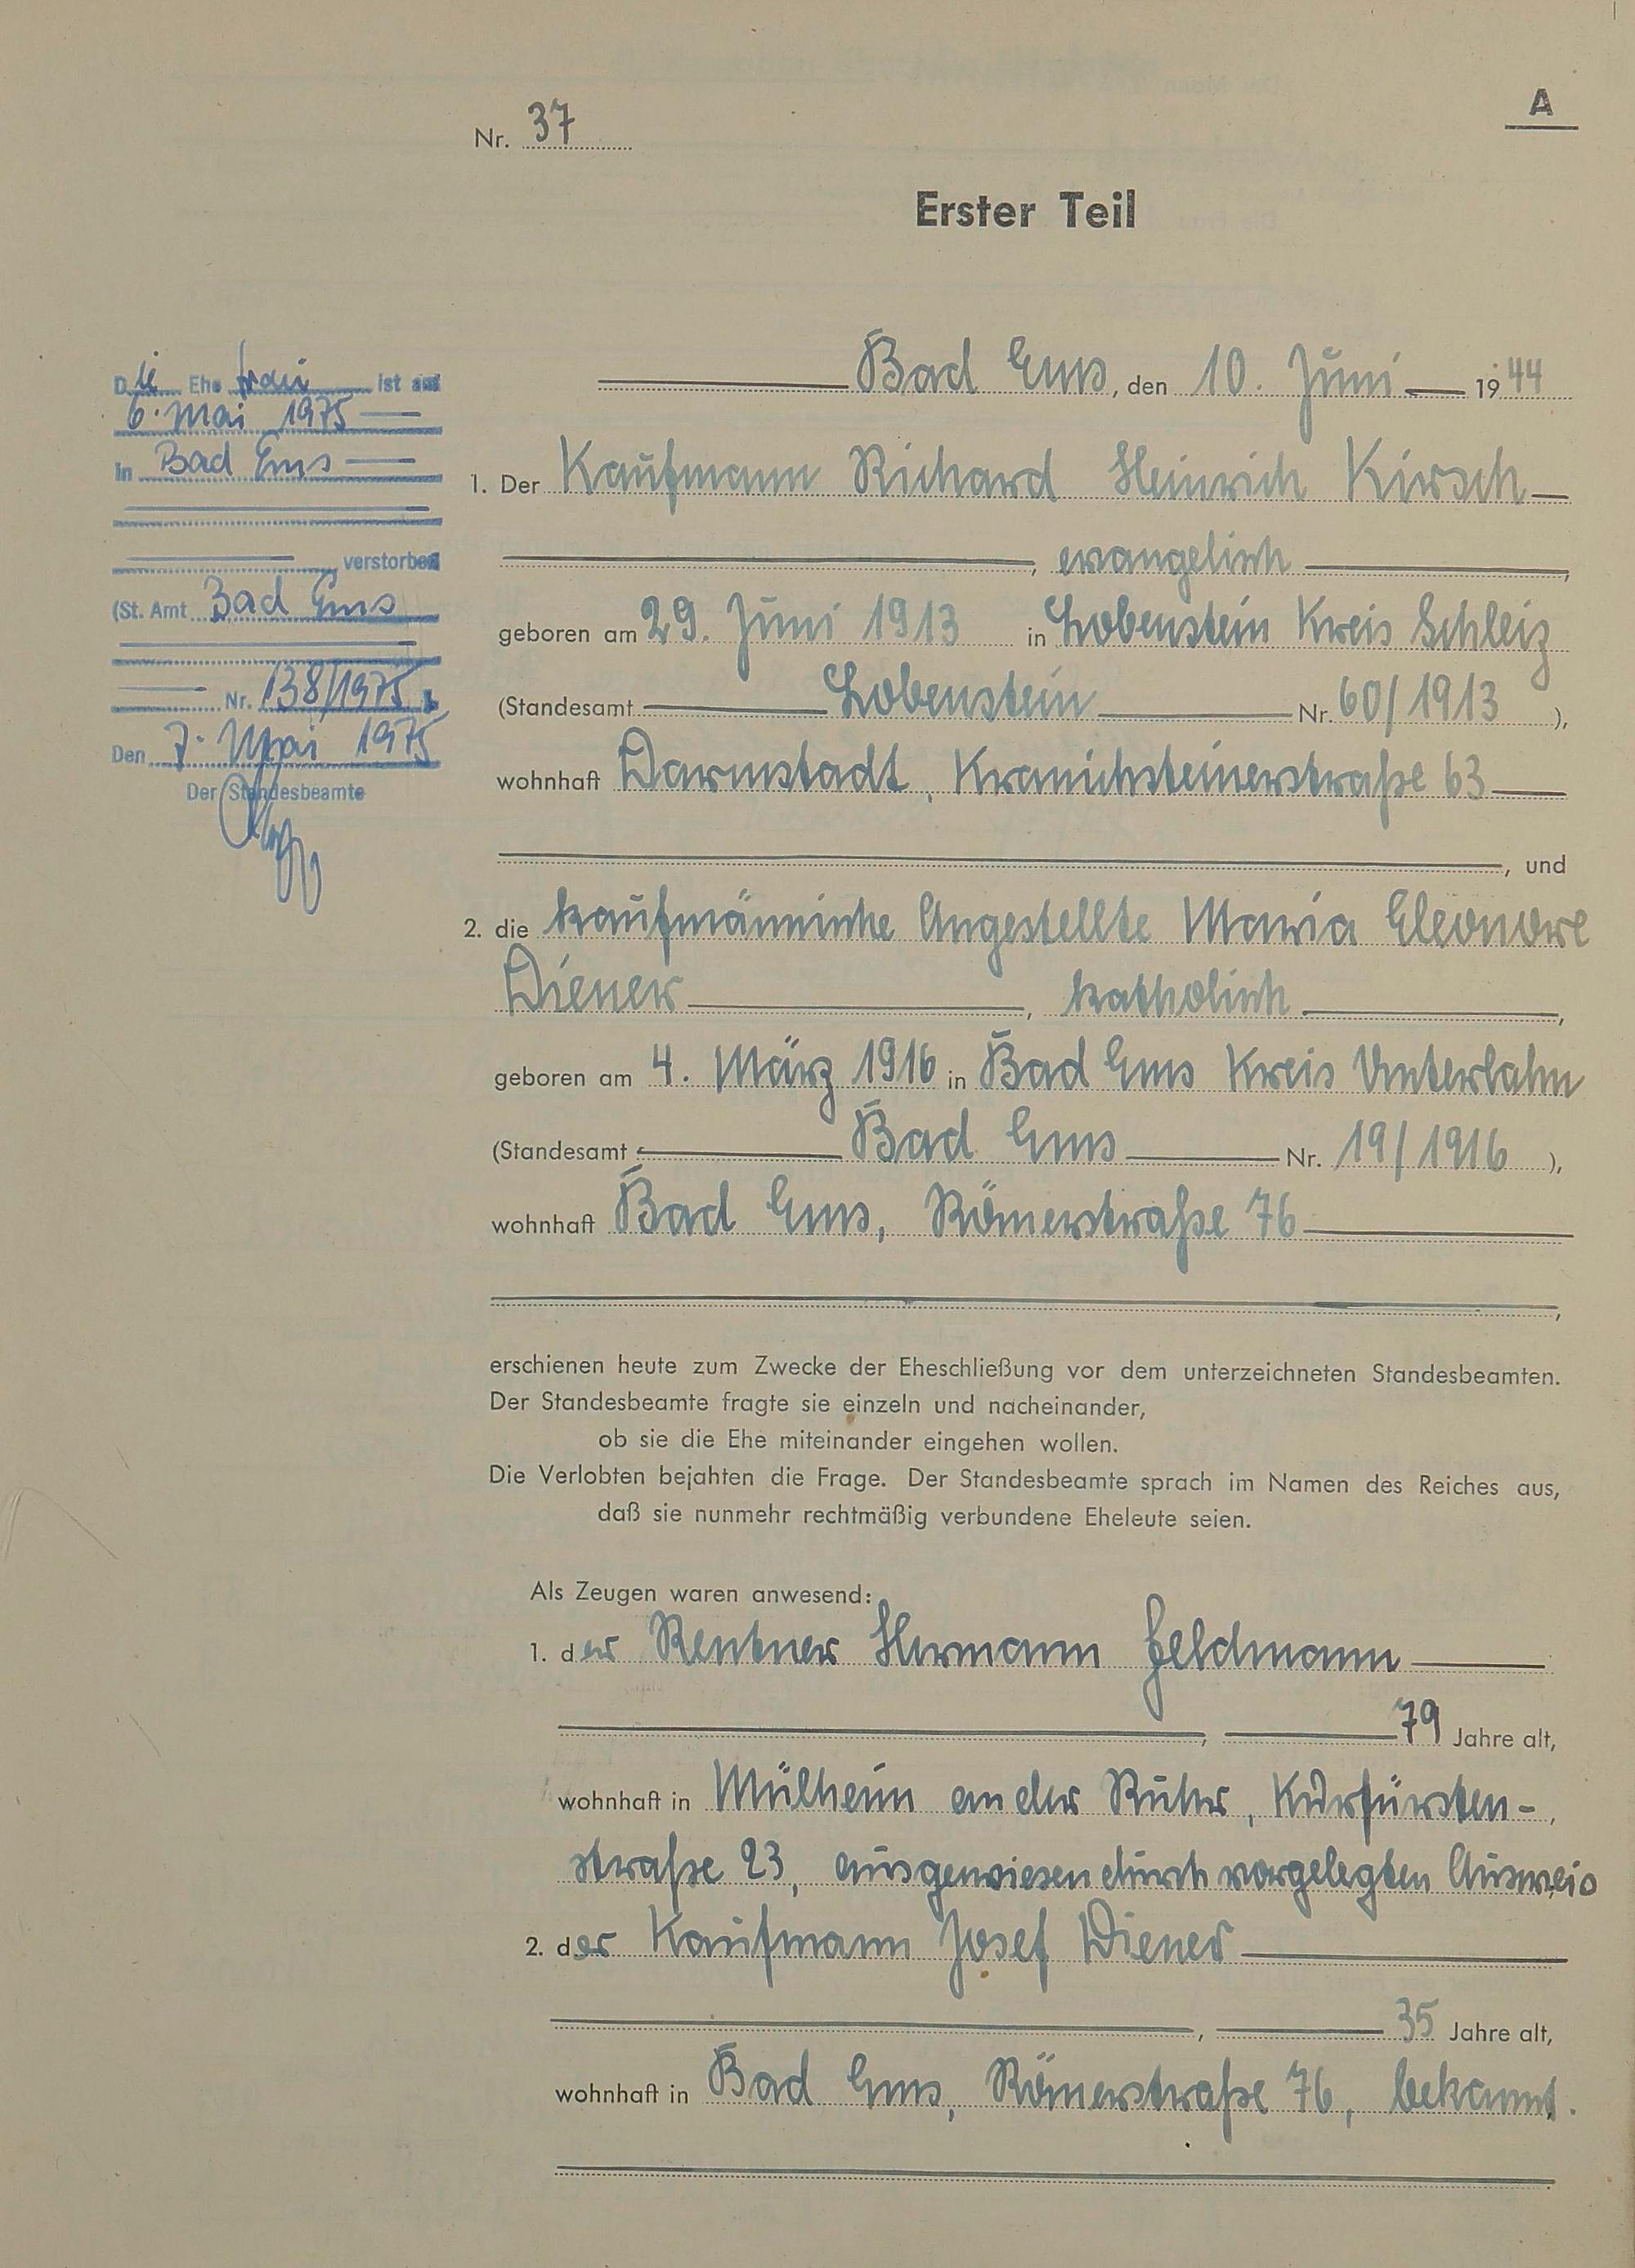 A
Nr. 37
Erster Teil
Die Ehefrau ist am
6. Mai 1975
in Bad Ems
verstorben
(St. Amt Bad Ems
Nr. 138/1975)
Den 7. Mai 1975
Der Standesbeamte
Bad Ems, den 10. Juni 1944
1. Der Kaufmann Richard Heinrich Kirsch
, evangelisch,
geboren am 29. Juni 1913 in Lobenstein Kreis Schleiz
(Standesamt Lobenstein Nr. 60/1913),
wohnhaft Darmstadt, Kranichsteinerstraße 63
, und
2. die kaufmännische Angestellte Maria Eleonore
Diener, katholisch,
geboren am 4. März 1916 in Bad Ems Kreis Unterlahn
(Standesamt Bad Ems Nr. 19/1916),
wohnhaft Bad Ems, Römerstraße 76
,
erschienen heute zum Zwecke der Eheschließung vor dem unterzeichneten Standesbeamten.
Der Standesbeamte fragte sie einzeln und nacheinander,
ob sie die Ehe miteinander eingehen wollen.
Die Verlobten bejahten die Frage. Der Standesbeamte sprach im Namen des Reiches aus,
daß sie nunmehr rechtmäßig verbundene Eheleute seien.
Als Zeugen waren anwesend:
1. der Rentner Hermann Feldmann
, 79 Jahre alt,
wohnhaft in Mülheim an der Ruhr, Kurfürsten-,
straße 23, ausgewiesen durch vorgelegten Ausweis
2. der Kaufmann Josef Diener
, 35 Jahre alt,
wohnhaft in Bad Ems, Römerstraße 76, bekannt.